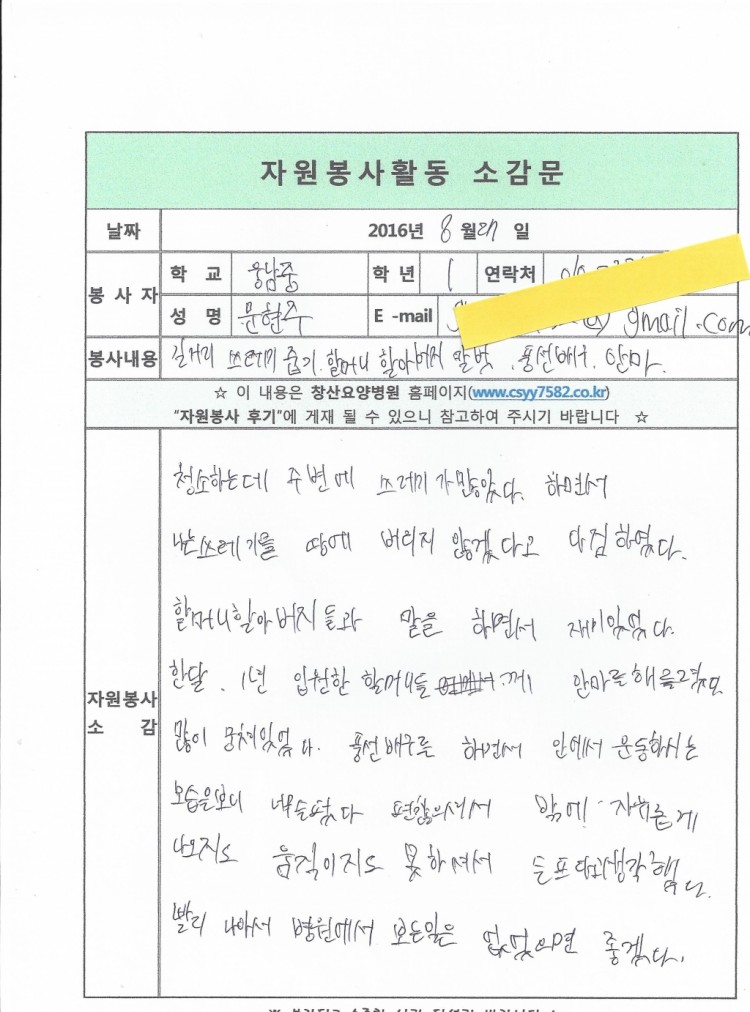 자원봉사활동 소감문
날짜 2016년 8월 27일
봉사자 학교 웅남중 학년 1 연락처
성명 문현주 E-mail gmail.com
봉사내용 길거리 쓰레기 줍기. 할머니 할아버지 말벗, 풍선배구. 안마.
☆ 이 내용은 창산요양병원 홈페이지(www.csyy7582.co.kr)
“자원봉사 후기”에 게재 될 수 있으니 참고하여 주시기 바랍니다 ☆
자원봉사 소감
청소하는데 주변에 쓰레기가 많았다. 하면서
나는 쓰레기를 땅에 버리지 않겠다고 다짐하였다.
할머니 할아버지들과 말을 하면서 재미있었다.
한달, 1년 입원한 할머니들 께 안마를 해
많이 뭉쳐있었다. 풍선배구를 하면서 안에서 운동하시는
모습을보니 슬펐다 밖에
나오지도 움직이지도 못하셔서 슬프다고생각했다.
빨리 나아서 병원에서 보는일은 없었으면 좋겠다.